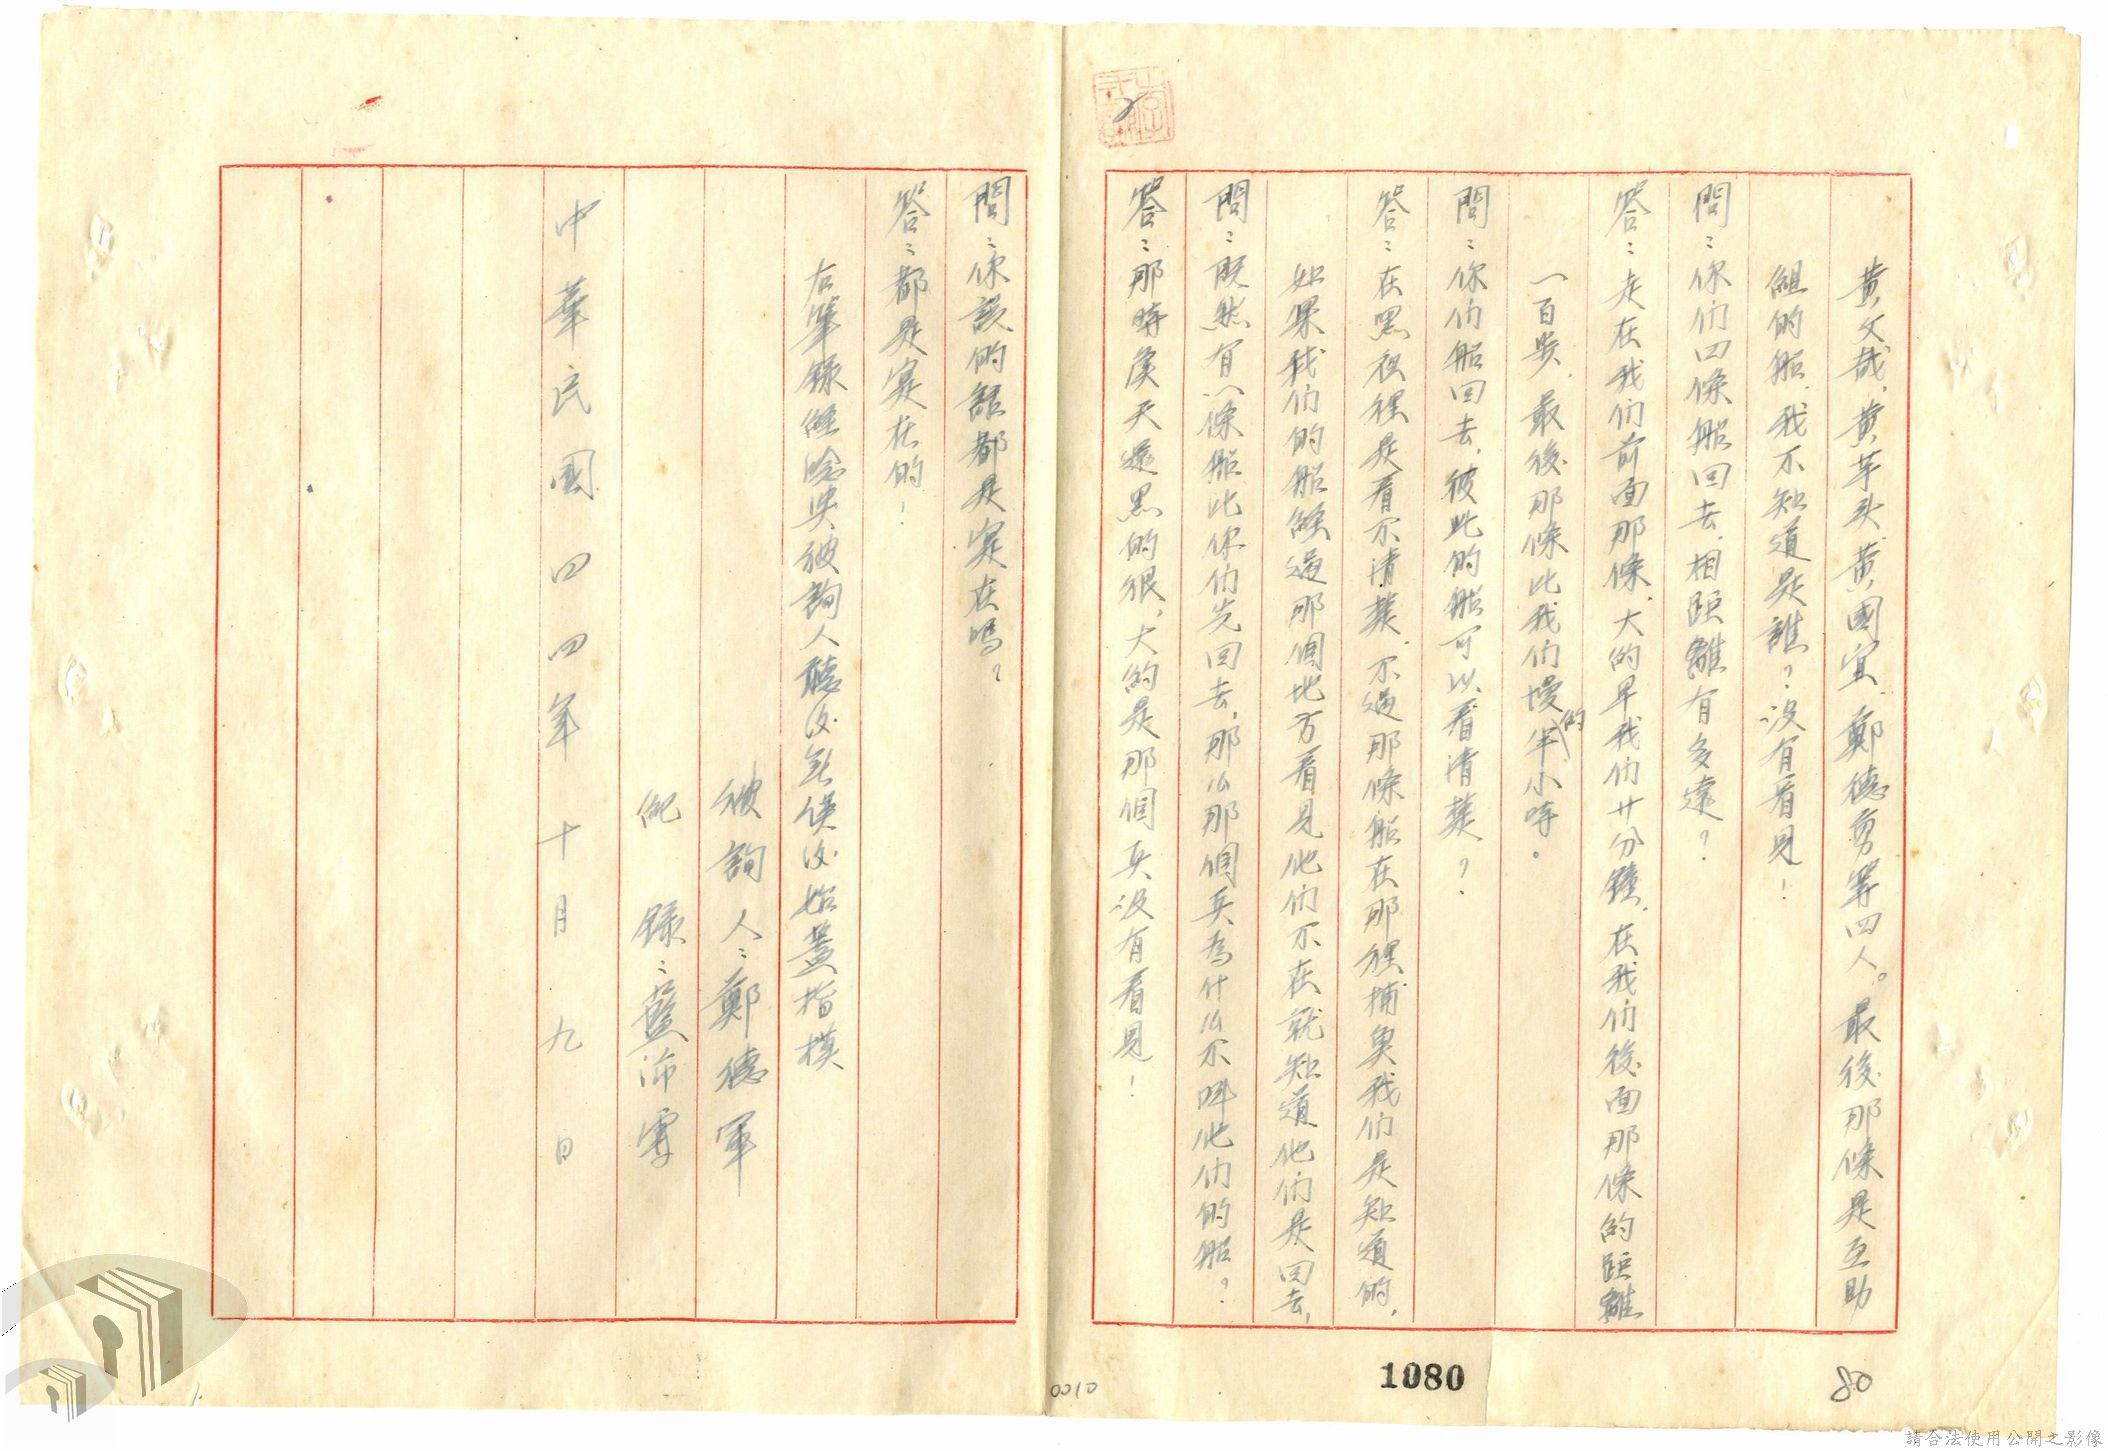 黃文哉,黃芋头,黃國宜,鄭德勇等四人。最後那條是互助
組的船,我不知道是誰?沒有看見!
問:你们四條船回去,相距離有多遠?
答:走在我们前面那條,大約早我们廿分鐘,在我们後面那條的距離
一百公尺,最後那條比我们慢的半小时。
問:你们船回去,彼此的船可以看清楚?
答:在黑夜裡是看不清楚,不過那條船在那裡捕魚我们是知道的,
如果我们的船候過那個地方看見他们不在就知道他们是回去,
問:既然有一條船比你们先回去,那么那個兵為什么不叫他们的船?
答:那時候天還黑的很,大約是那個兵沒有看見!
問:你說的話都是實在嗎?
答:都是實在的!
右筆錄經唸与被詢人聽後無误後始蓋指模
被詢人:鄭德軍
紀錄:藍沛
中華民國四四年十月九日
1080
80
0010
請合法使用公開之影像